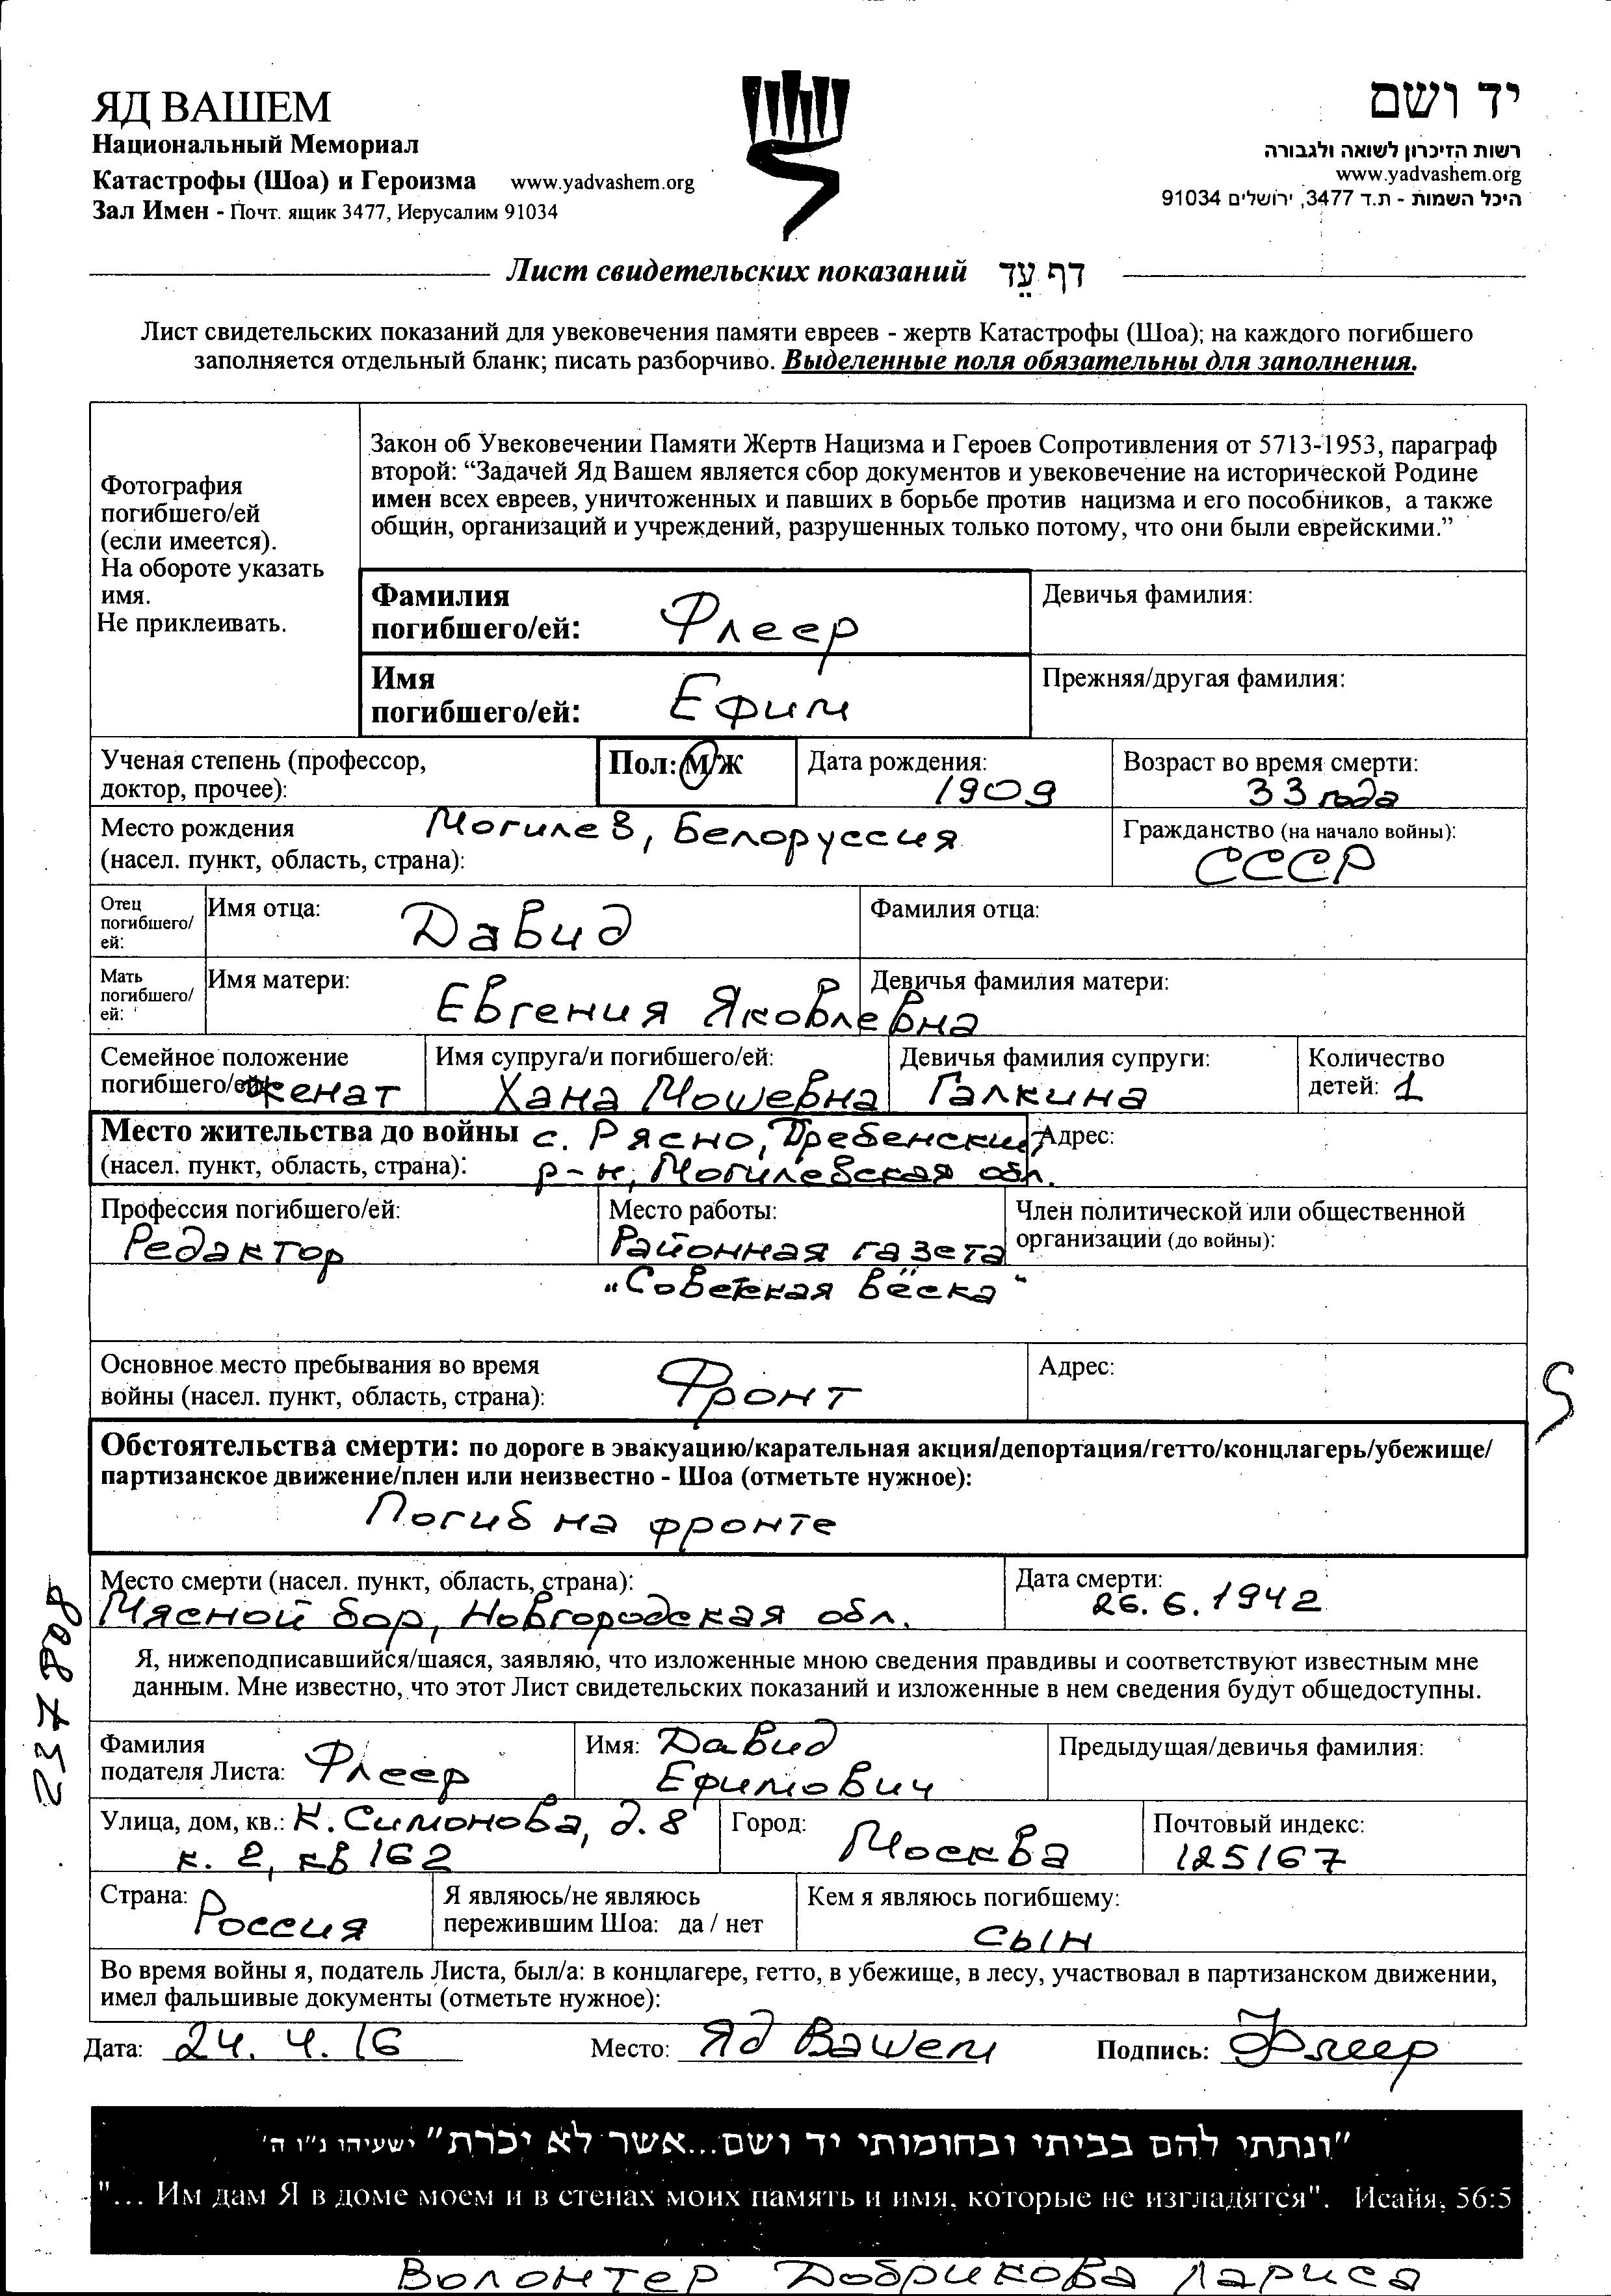 ЯД ВАШЕМ
Национальный Мемориал
Катастрофы (Шоа) и Героизма www.yadvashem.org
Зал Имен - Почт. ящик 3477, Иерусалим 91034
יד ושם
רשות הזיכרון לשואה ולגבורה
www.yadvashem.org
היכל השמות - ת.ד 3477, ירושלים 91034
Лист свидетельских показаний דף עֵד
Лист свидетельских показаний для увековечения памяти евреев - жертв Катастрофы (Шоа); на каждого погибшего
заполняется отдельный бланк; писать разборчиво. Выделенные поля обязательны для заполнения.
Фотография
погибшего/ей
(если имеется).
На обороте указать
имя.
Не приклеивать.
Закон об Увековечении Памяти Жертв Нацизма и Героев Сопротивления от 5713-1953, параграф
второй: “Задачей Яд Вашем является сбор документов и увековечение на исторической Родине
имен всех евреев, уничтоженных и павших в борьбе против нацизма и его пособников, а также
общин, организаций и учреждений, разрушенных только потому, что они были еврейскими.”
Фамилия
погибшего/ей: Флеер
Девичья фамилия:
Имя
погибшего/ей: Ефим
Прежняя/другая фамилия:
Ученая степень (профессор,
доктор, прочее):
Пол: М/Ж
Дата рождения:
1909
Возраст во время смерти:
33 года
Место рождения Могилев, Белоруссия
(насел. пункт, область, страна):
Гражданство (на начало войны):
СССР
Отец
погибшего/
ей:
Имя отца: Давид
Фамилия отца:
Мать
погибшего/
ей:
Имя матери: Евгения Яковлевна
Девичья фамилия матери:
Семейное положение
погибшего/ей: женат
Имя супруга/и погибшего/ей:
Хана Мошевна
Девичья фамилия супруги:
Галкина
Количество
детей: 1
Место жительства до войны с. Рясно, Дребенский
(насел. пункт, область, страна): р-н, Могилевская обл.
Адрес:
Профессия погибшего/ей:
Редактор
Место работы:
Районная газета
"Советская вёска"
Член политической или общественной
организации (до войны):
Основное место пребывания во время
войны (насел. пункт, область, страна): Фронт
Адрес:
Обстоятельства смерти: по дороге в эвакуацию/карательная акция/депортация/гетто/концлагерь/убежище/
партизанское движение/плен или неизвестно - Шоа (отметьте нужное):
Погиб на фронте
Место смерти (насел. пункт, область, страна):
Мясной бор, Новгородская обл.
Дата смерти:
26.6.1942
237808
Я, нижеподписавшийся/шаяся, заявляю, что изложенные мною сведения правдивы и соответствуют известным мне
данным. Мне известно, что этот Лист свидетельских показаний и изложенные в нем сведения будут общедоступны.
Фамилия
подателя Листа: Флеер
Имя: Давид
Ефимович
Предыдущая/девичья фамилия:
Улица, дом, кв.: К. Симонова, д. 8
к. 2, кв 162
Город:
Москва
Почтовый индекс:
125167
Страна:
Россия
Я являюсь/не являюсь
пережившим Шоа: да / нет
Кем я являюсь погибшему:
сын
Во время войны я, податель Листа, был/а: в концлагере, гетто, в убежище, в лесу, участвовал в партизанском движении,
имел фальшивые документы (отметьте нужное):
Дата: 24.4.16 Место: Яд Вашем Подпись: Флеер
"ונתתי להם בביתי ובחומותי יד ושם...אשר לא יכרת" ישעיהו נ"ו ה'
"... Им дам Я в доме моем и в стенах моих память и имя, которые не изгладятся". Исайя, 56:5
Волонтер Добрикова Лариса